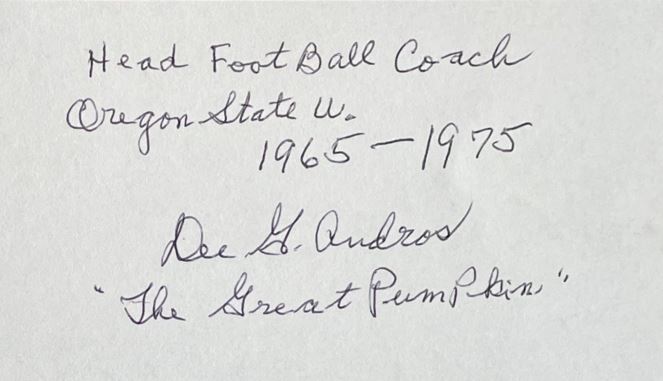 Head FootBall Coach
Oregon State U.
1965-1975
Dee G. Andros
"The Great Pumpkin"